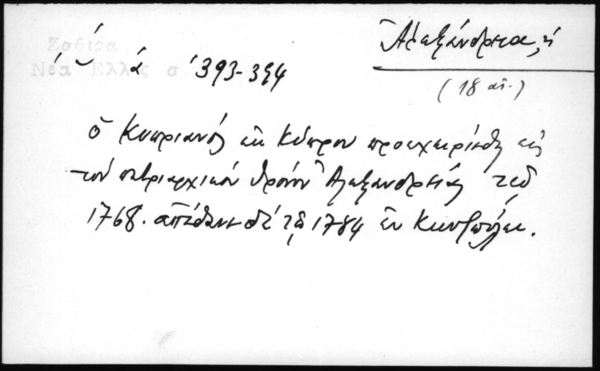 Ἀλεξάνδρεια, ἡ
Ζαβίρα
Νέα Ἑλλὰς σ 393-394
(18 αἰ.)
ὁ Κυπριανὸς ἐκ Κύπρου προεχειρίσθη εἰς
τὸν πατριαρχικὸν θρόνον Ἀλεξανδρείας τῷ
1768. ἀπέθανε δὲ τῷ 1784 ἐν Κων/πόλει.